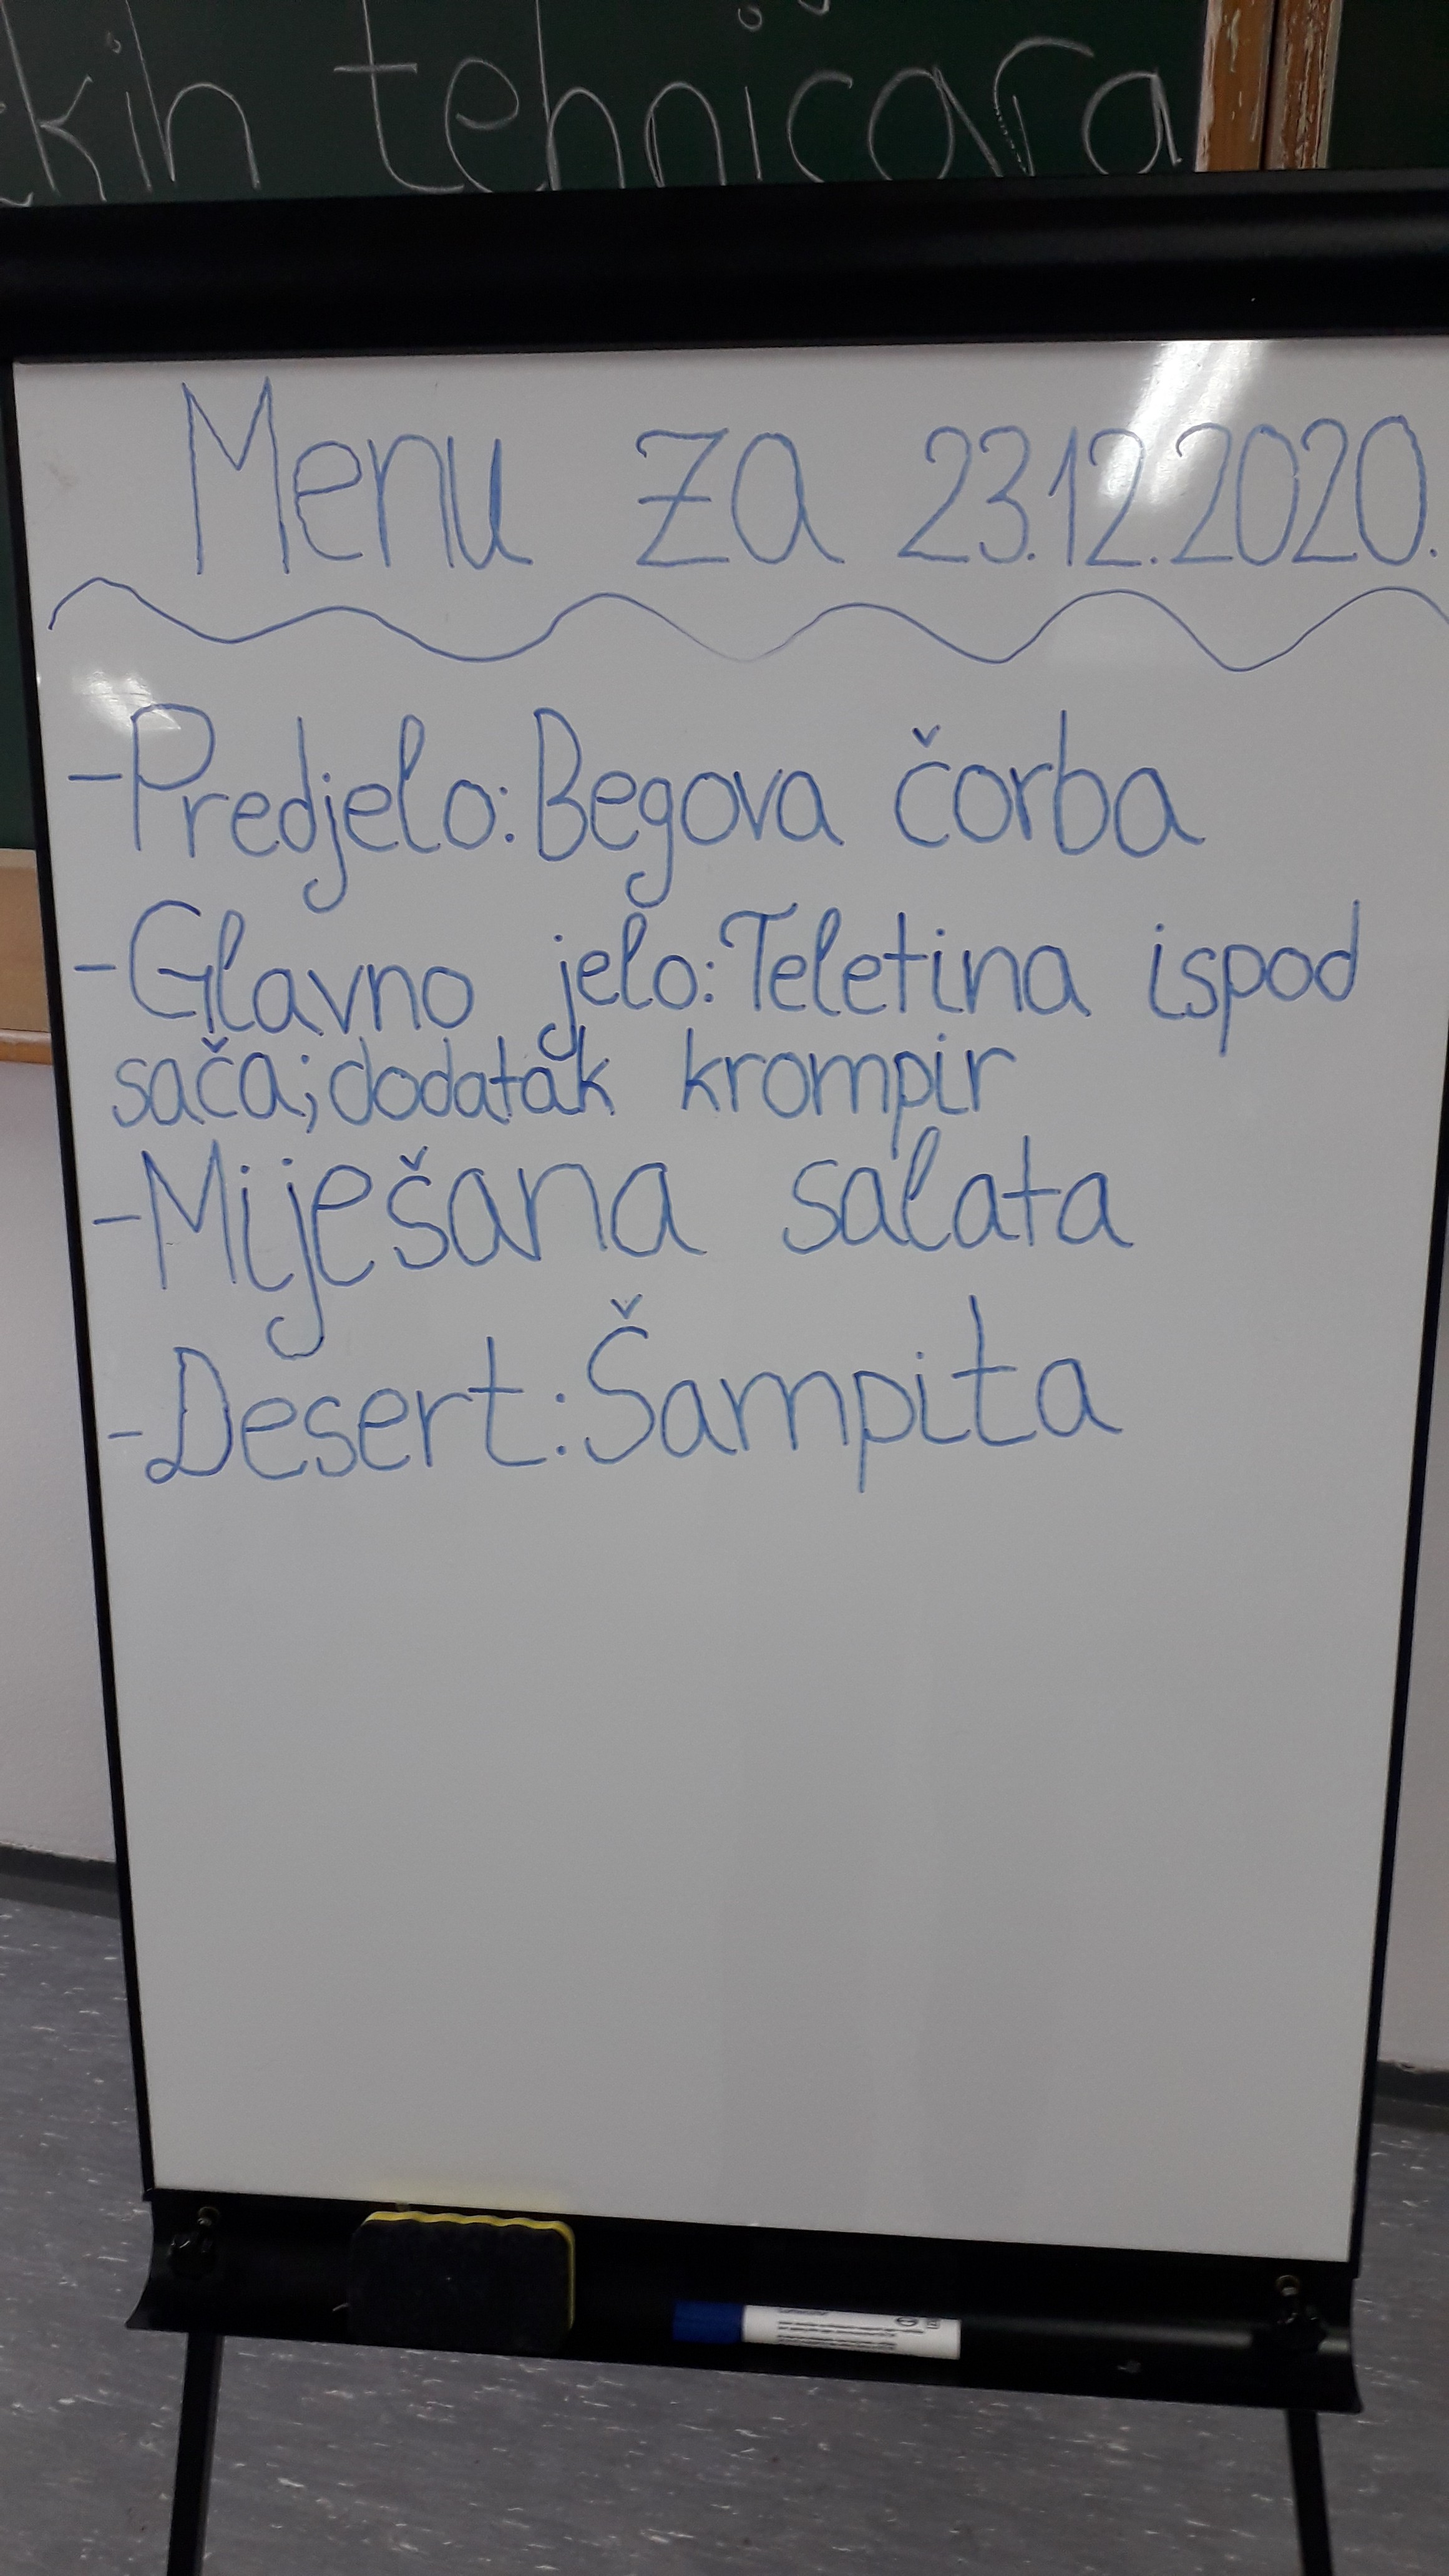 kih tehničara
Menu za 23.12.2020.
-Predjelo: Begova čorba
-Glavno jelo: Teletina ispod
sača; dodatak krompir
-Miješana salata
-Desert: Šampita